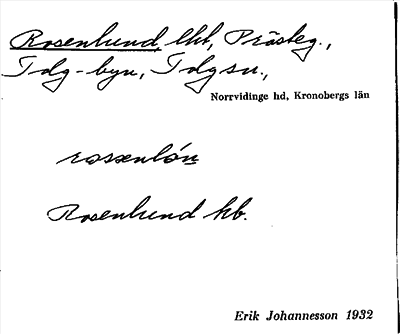 Rosenlund, lht, Prästeg.,
Tdg-byn, Tdgsn.,
Norrvidinge hd, Kronobergs län
Rosenlund hb.
Erik Johannesson 1932